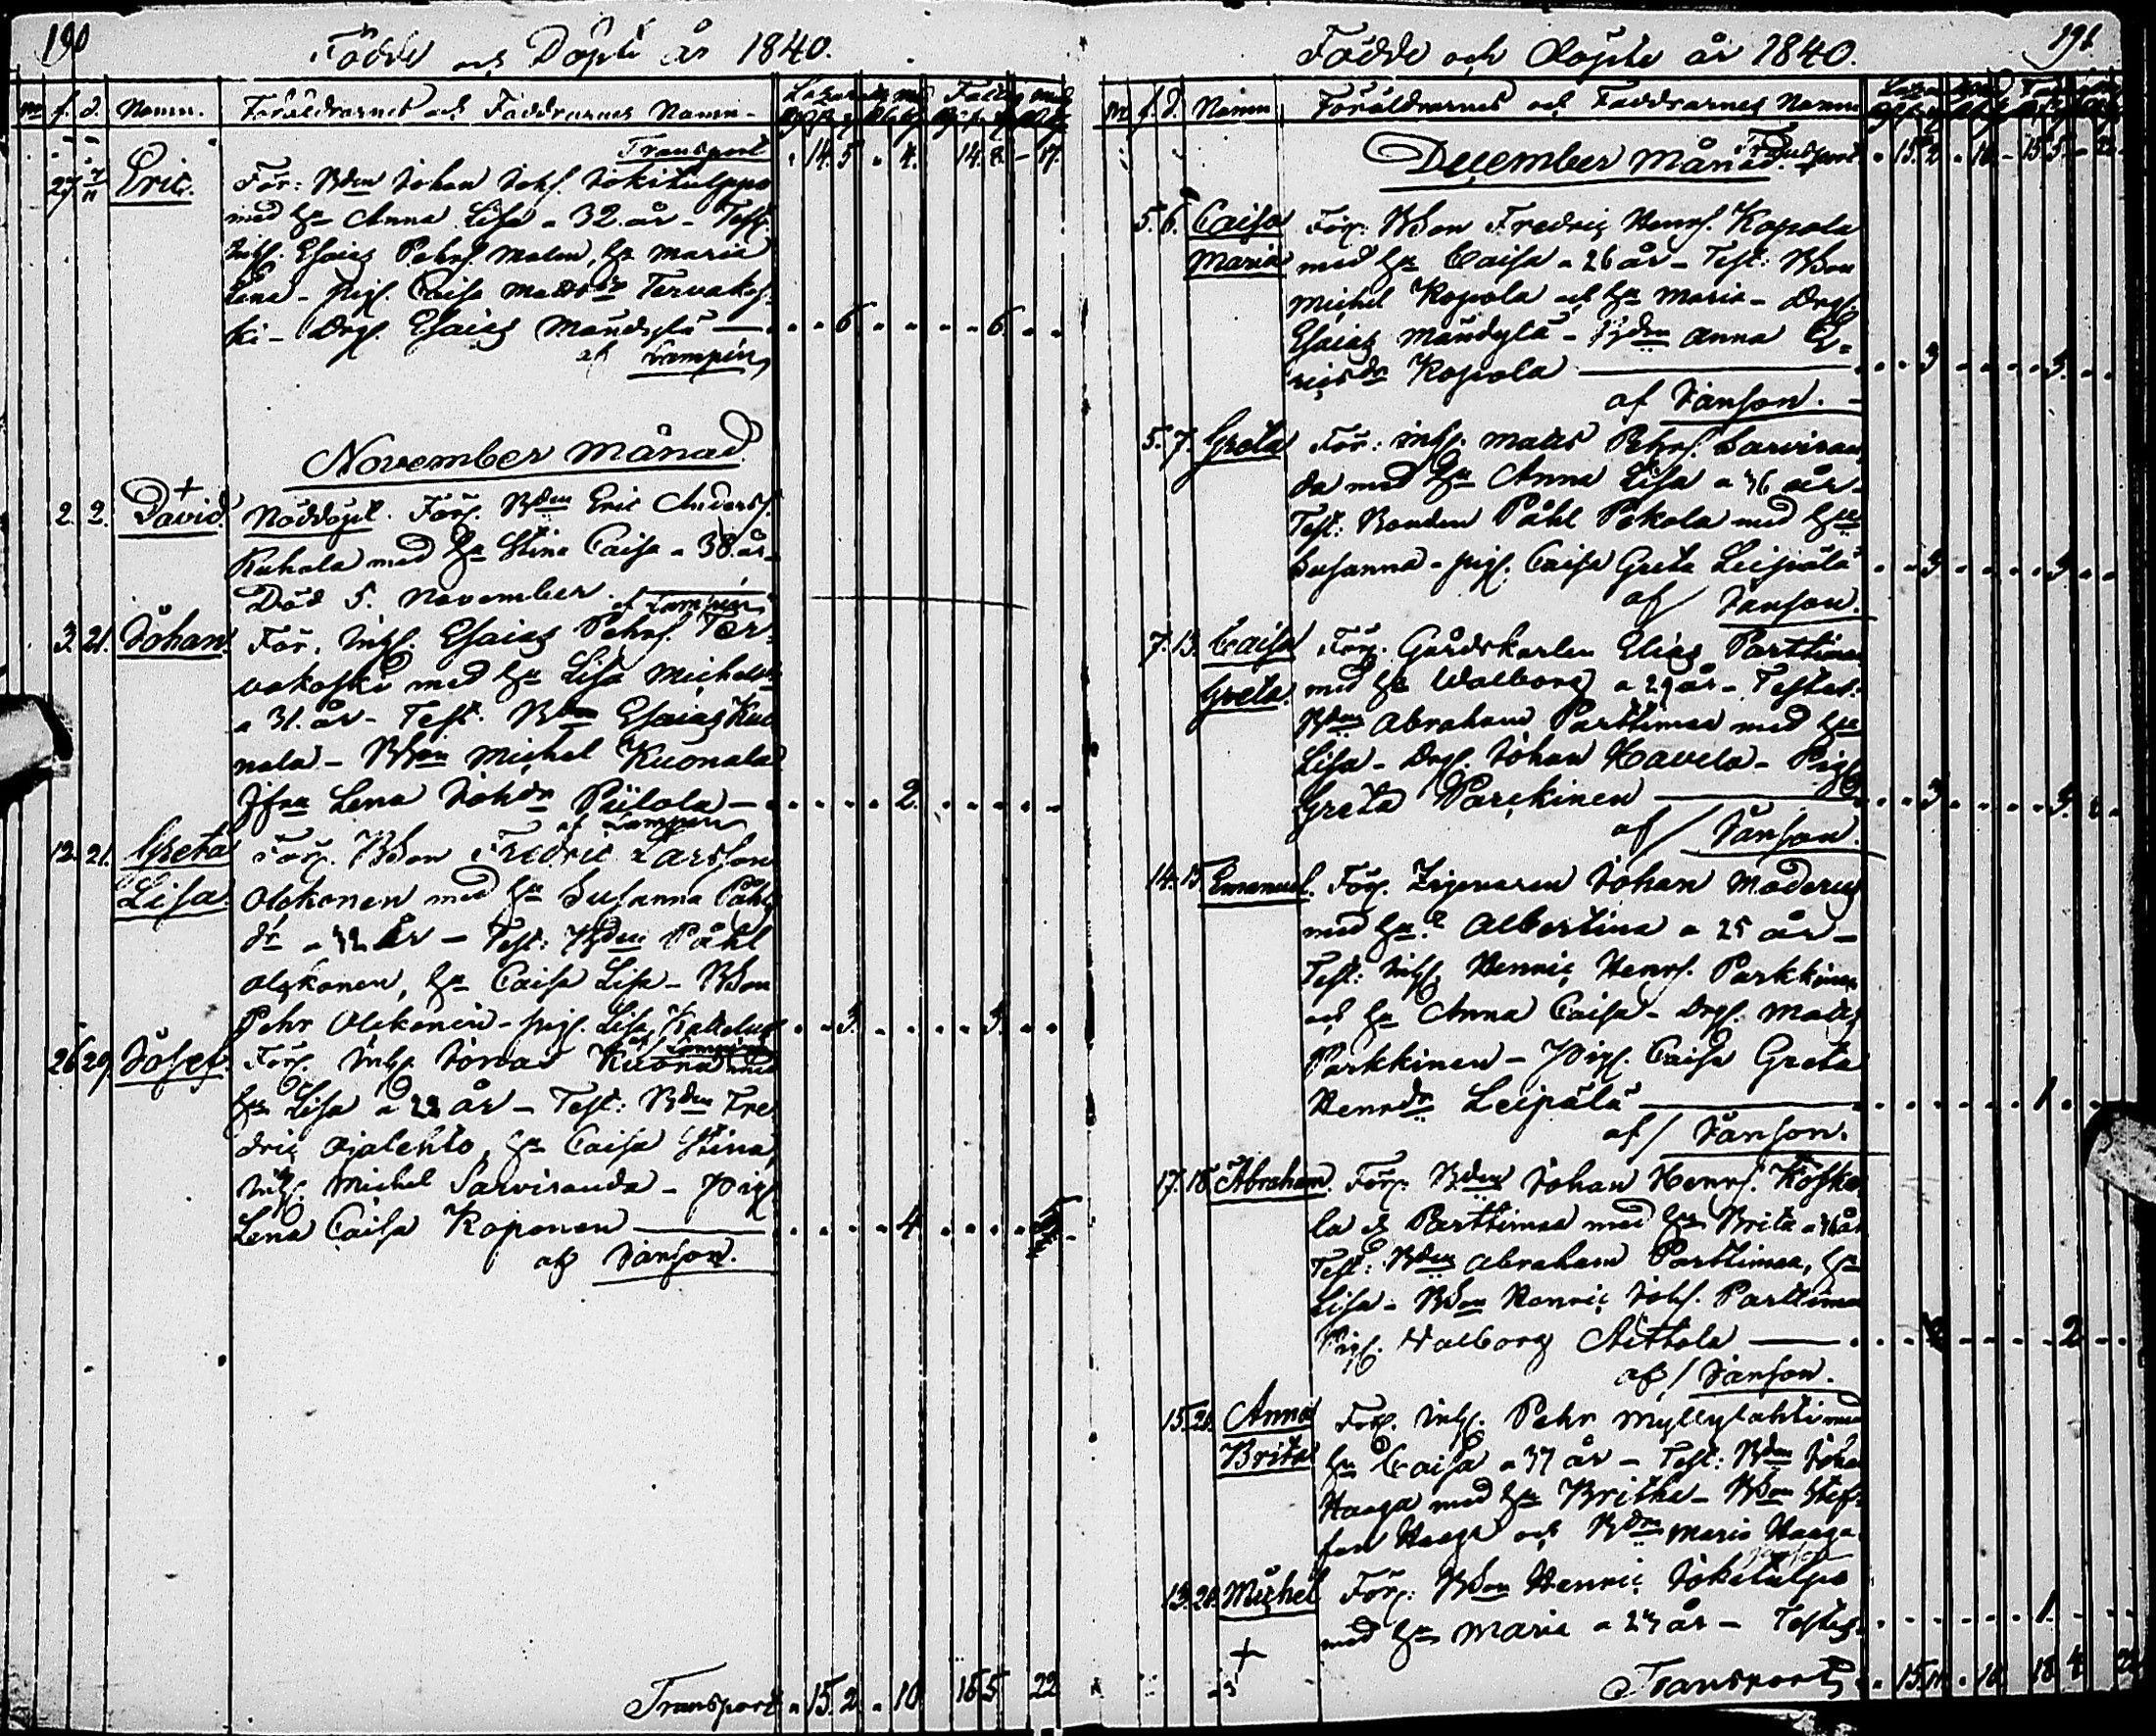 190
Födde och Döpte år 1840.
m f. d. Namn. Föräldrarnes och Faddrarnes Namn.
Transport . 14. 5 . 4. 14. 8. - 17.
27. 1/11 Eric. För: Bden Johan Johs. Jokitulppo
med h:u Anna Lisa - 32 år - Test.
Inhs. Esaias Pehrs. Malen, h:u Maria
Lena - pig. Caisa Matsdr Tervakos
ki - Drg. Esaias Mändylä - 6 6
af Lampén
November Månad
2. 2. David + Döddöpt. För. Bden Eric Anderss.
Kuhala med h:u Stina Caisa - 38. år -
Död 5. November. af Lampén
3. 21. Johan. För. Inhs. Esaias Pehrs. Ter-
vakoski med h:u Lisa Michelsdr
- 31. år - Test. Bden Esaias Kuo
nala - Bson Michel Kuonala
Jfru Lena Johdr Piilola - 2.
af Lampén
12. 21. Greta För. Bson Fredric Larsson
Lisa. Olokonen med h:u Susanna Påhls
dr - 32 år - Test: Bden Påhl
Olokonen, h:u Caisa Lisa - Bson
Pehr Olokonen - pig. Lisa 3. 3.
af Lampén
26 29. Josef. För. Inhs. Jonas Kuona med
h:u Lisa a 22 år - Test: Bden Fre
dric Ojalehto, h:u Caisa Stina,
Inhs. Michel Sarviranda - Pig.
Lena Caisa Koponen - 4
af Janson.
Transport . 15. 2. . 10 15 5 22
191
Födde och Döpte år 1840.
m f. d. Namn Föräldrarnes och Faddrarnes Namn
Transport . 15. 2 . 10 - 15 5 - 22
December Månad.
5. 6. Caisa För. Bson Fredric Henrs. Kopola
Maria med h:u Caisa - 26 år - Test: Bson
Michel Kopola och h:u Maria - Drg.
Esaias Mändylä - Anna E-
ricsdr Kopola - 3 3.
af Janson. -
5. 7. Greta För: Inhs. Mats Pehrs. Sarviran
da med h:u Anna Lisa a 36 år -
Test: Bonden Påhl Pekola med h:u
Susanna - pig. Caisa Greta Leipälä 3 3
af Janson.
7. 13. Caisa För. Gårdskarlen Elias Parttimaa
Greta. med h:u Walborg a 29 år - Testes:
Bden Abraham Parttimaa med h:u
Lisa - Drg. Johan Havela - Pig.
Greta Parckinen - 3 3.
af Janson.
14. 15. Emanuel. För. Zigenaren Johan Moderus
med h:u Albertina a 25 år -
Test: Inhs. Henric Henrs. Parkkinen
och h:u Anna Caisa - Drg. Mats
Parkkinen - Pig. Caisa Greta
Henrdr Leipälä - 1
af Janson.
17. 18. Abraham. För. Bden Johan Henrs. Koske
la & Parttimaa med h:u Brita a 36 år
Test: Bden Abraham Parttimaa, h:u
Lisa - Bson Henric Johs. Parttimaa
Pig. Walborg Aittola - 2
af Janson.
15. 20. Anna För. Inhs. Pehr Myllylahti med
Brita h:u Caisa a 37 år - Test: Bden Johan
Haaga med h:u Britha - Bson Stef-
fan Haaga och Maria Haaga.
13. 20. Michel För: Bson Henric Jokitulpo
+ med h:u Maria a 27 år - Testes. 1.
Transport